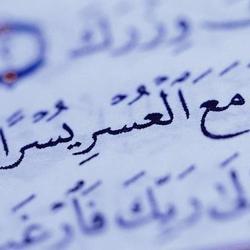 وِزْرَكَ
مَعَ ٱلْعُسْرِ يُسْرًا
رَبِّكَ فَٱرْغَب